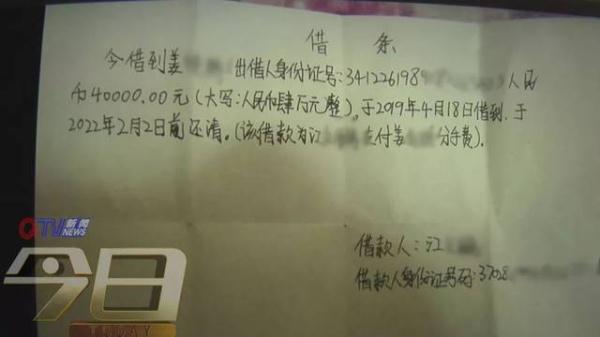 借 条
今借到姜 出借人身份证号:341226198 人民
币40000.00元(大写:人民币肆万元整),于2019年4月18日借到,于
2022年2月2日前还清。(该借款为江 支付姜 分手费).
借款人:江
借款人身份证号码:3702
QTV新闻
NEWS
今日
TODAY